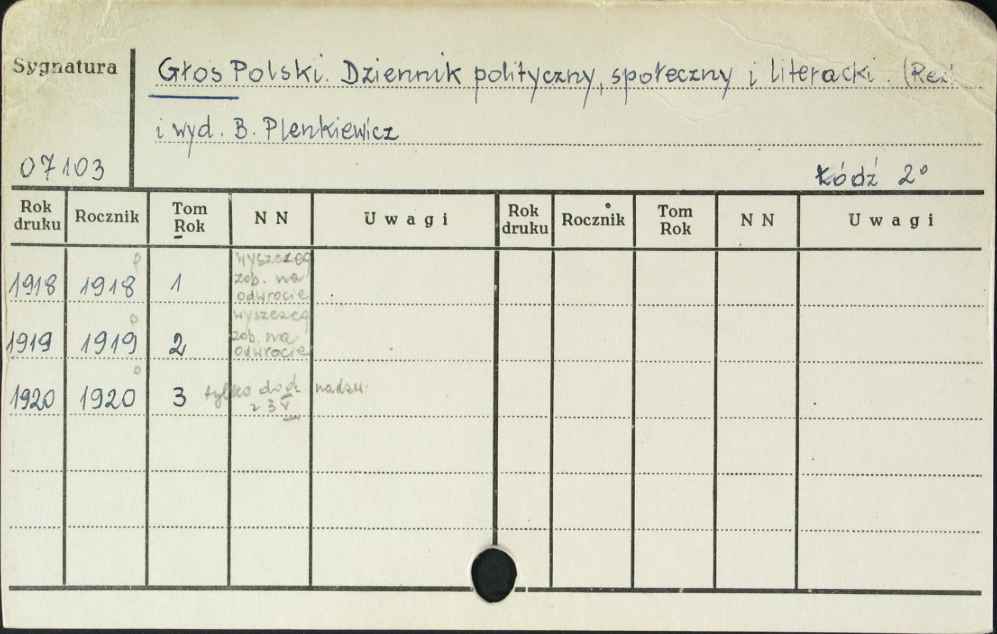 Sygnatura
Głos Polski. Dziennik polityczny, społeczny i literacki. (Red.
i wyd. B. Plenkiewicz
07103
Łódź 2°
Rok druku Rocznik Tom Rok N N U w a g i Rok druku Rocznik Tom Rok N N U w a g i
1918 1918 1 wyszczeg
zob. na
odwrocie
1919 1919 2 wyszczeg
zob. na
odwrocie
1920 1920 3 tylko dod. nadzw.
z 3 V